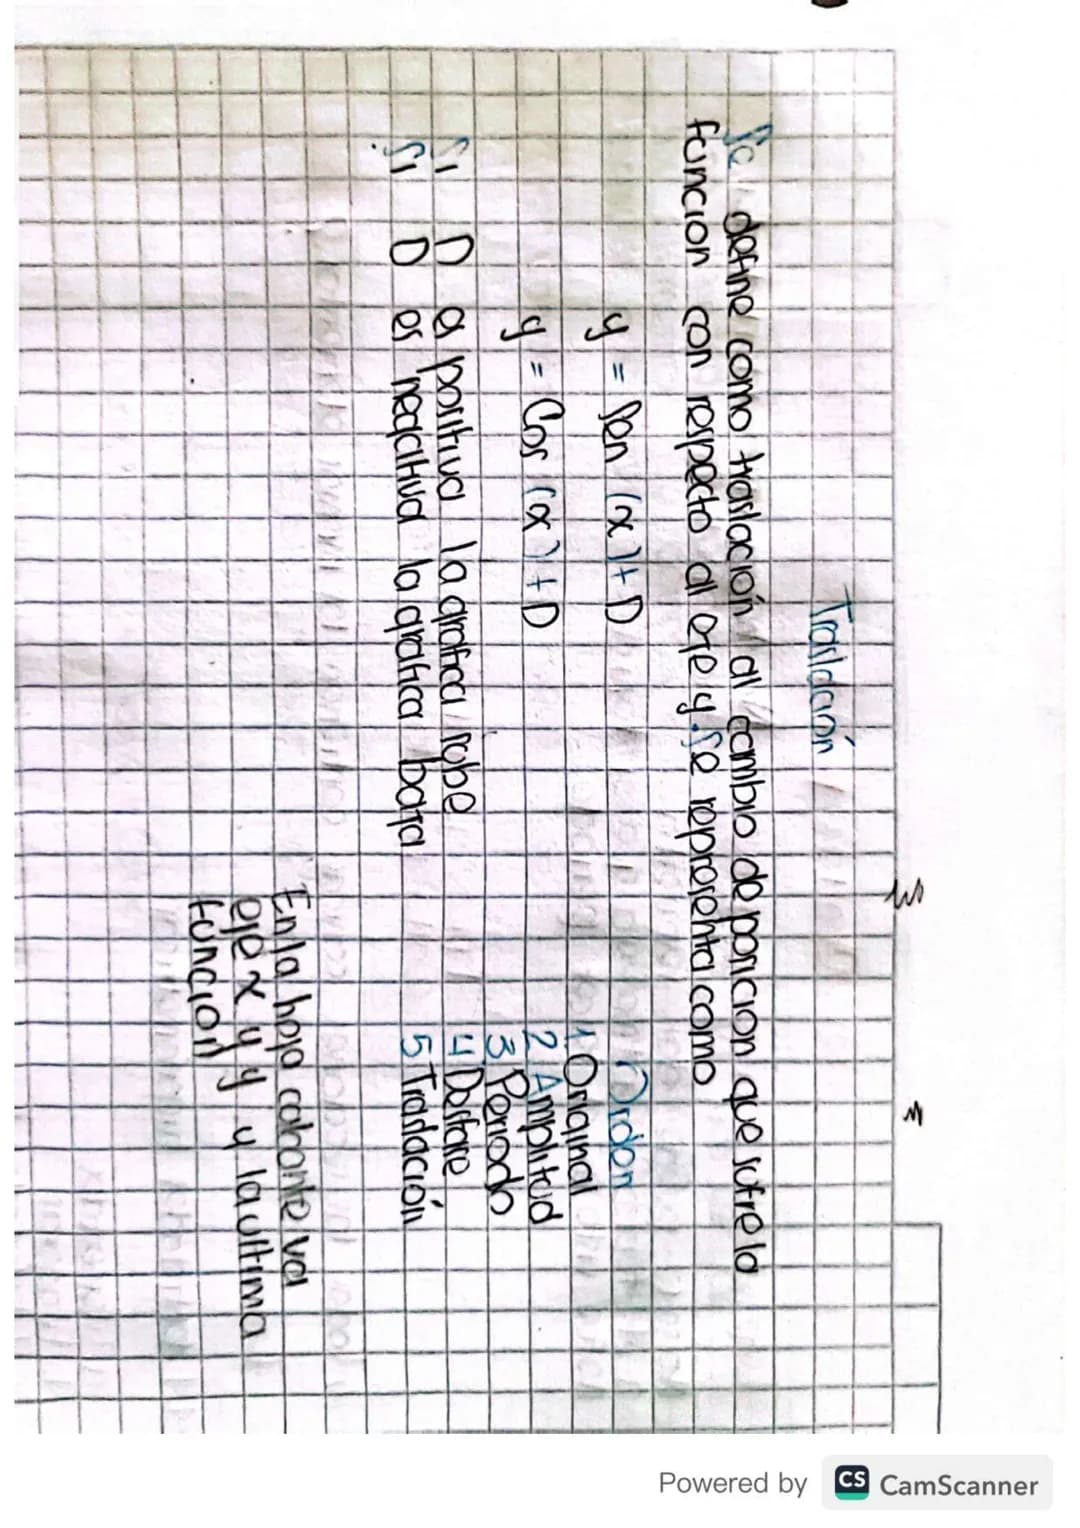 Traslación
Se define como traslación al cambio de posicion que sufre la
funcion con respecto al eje y. Se representa como
y = Sen (x) + D
y = Cos (x) + D
Si D es positiva la grafica sube
Si D es negativa la grafica baja
Orden
1 Original
2 Amplitud
3 Periodo
4 Desfase
5 Traslación
En la hoja cobonte va
eje x y y y la ultima
funcion
Powered by CS CamScanner